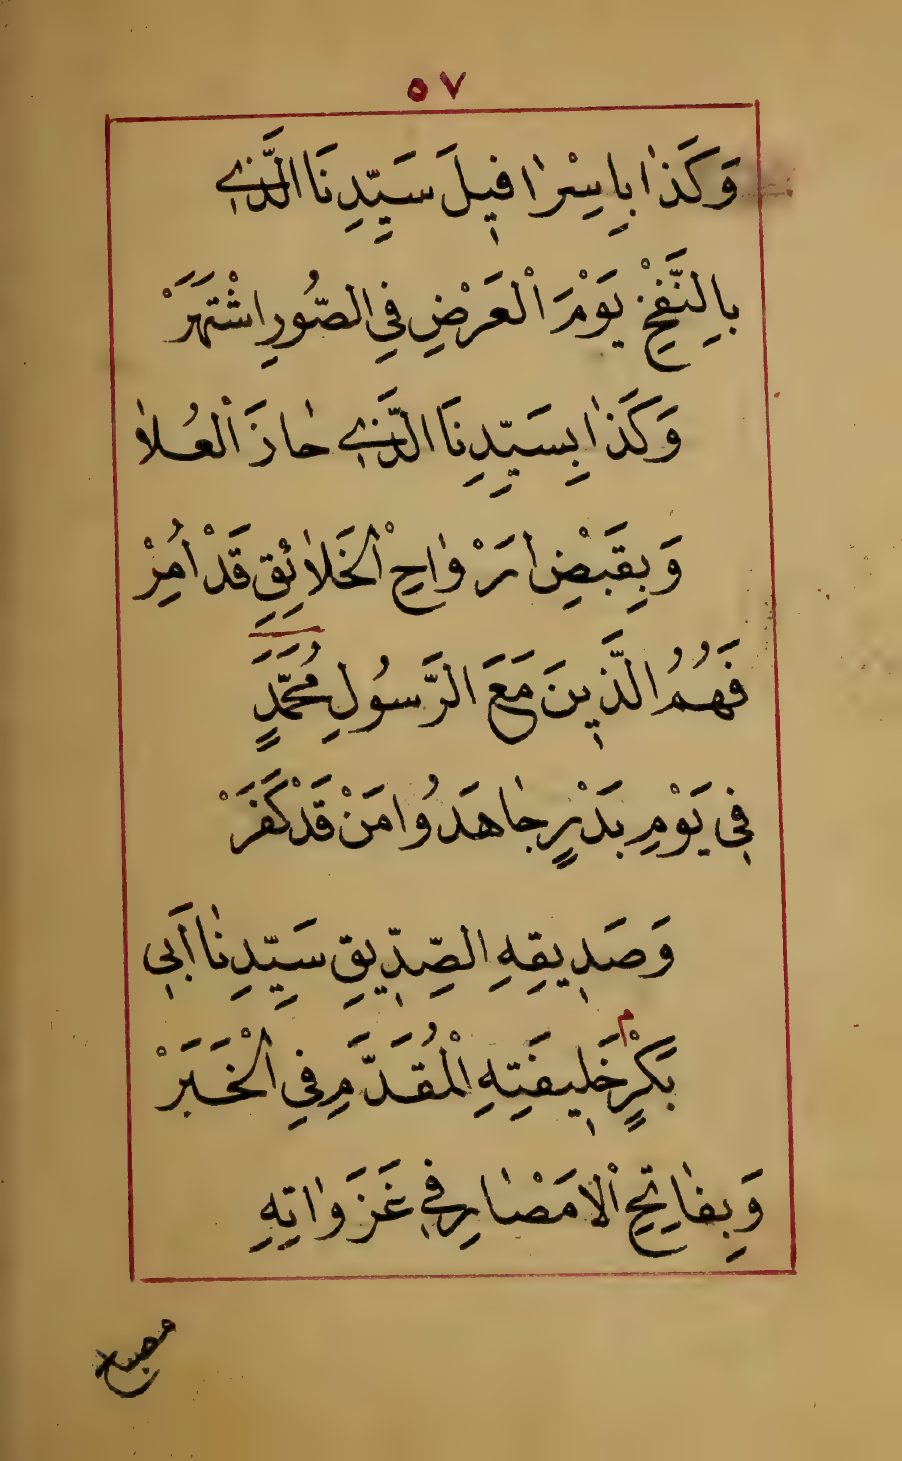 ٥٧
وَكَذٰا بِاِسِرْافِيلَ سَيِّدِنَا الَّذِي
بِالنَّفْخِ يَوْمَ الْعَرْضِ فِي الصُّورِ اشْتَهَرَ
وَكَذٰا بِسَيِّدِنَا الَّذِي حٰازَ الْعُلاٰ
وَبِقَبْضِ ارَوْاحِ الْخَلاٰئِقِ قَدْ اُمِرْ
فَهُمُ الَّذِينَ مَعَ الرَّسُولِ مُحَمَّدٍ
فِي يَوْمِ بَدْرٍ جٰاهَدُوا مَنْ قَدْ كَفَرَ
وَصَدِيقِهِ الصِّدِّيقِ سَيِّدِنٰا اَبِي
بَكْرٍ خَلِيفَتِهِ الْمُقَدَّمِ فِي الْخَبَرْ
م
وَبِفٰاتِحِ الْامَصْٰارِ فِي غَزَوٰاتِهِ
مصباح